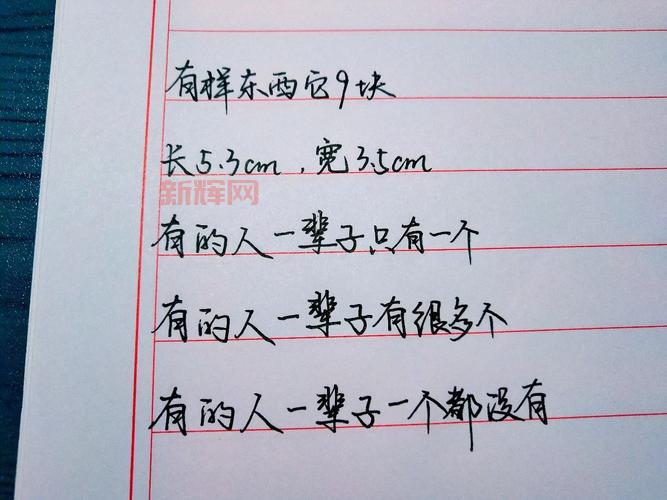 有样东西它9块
长5.3cm，宽3.5cm
新辉网
有的人一辈子只有一个
有的人一辈子有很多个
有的人一辈子一个都没有